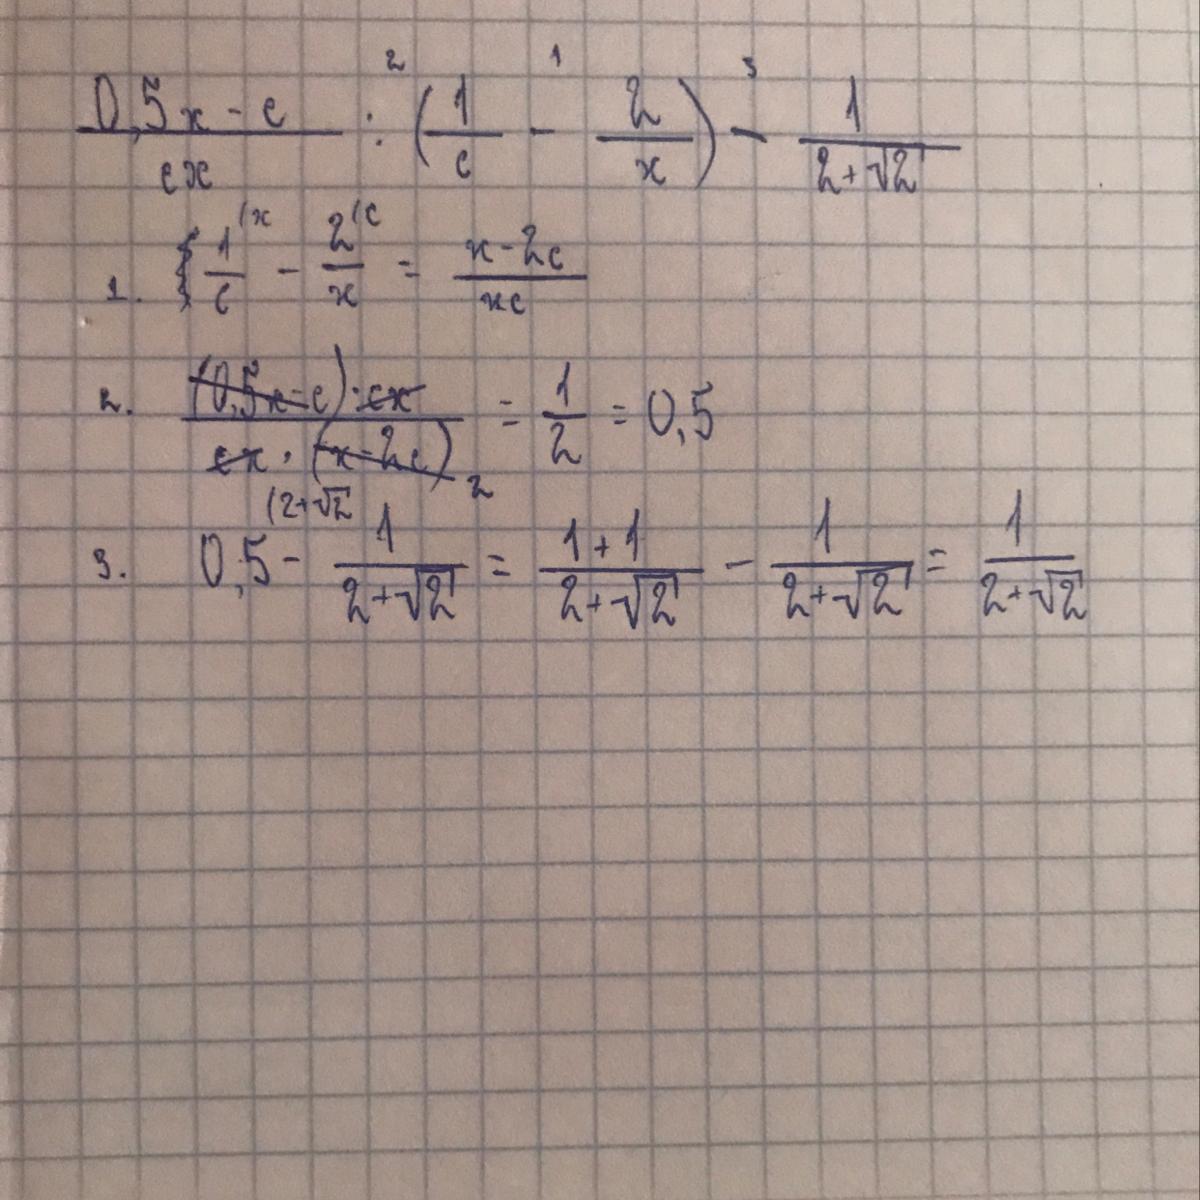 2 1 3
(0,5x - c)/(cx) : (1/c - 2/x) - 1/(2+√2)
1. 1/c (/x - 2/x (/c = (x-2c)/(xc)
2. ((0,5x-c)·cx)/(cx·(x-2c)) 2 = 1/2 = 0,5
3. 0,5 (2+√2 - 1/(2+√2) = (1+1)/(2+√2) - 1/(2+√2) = 1/(2+√2)